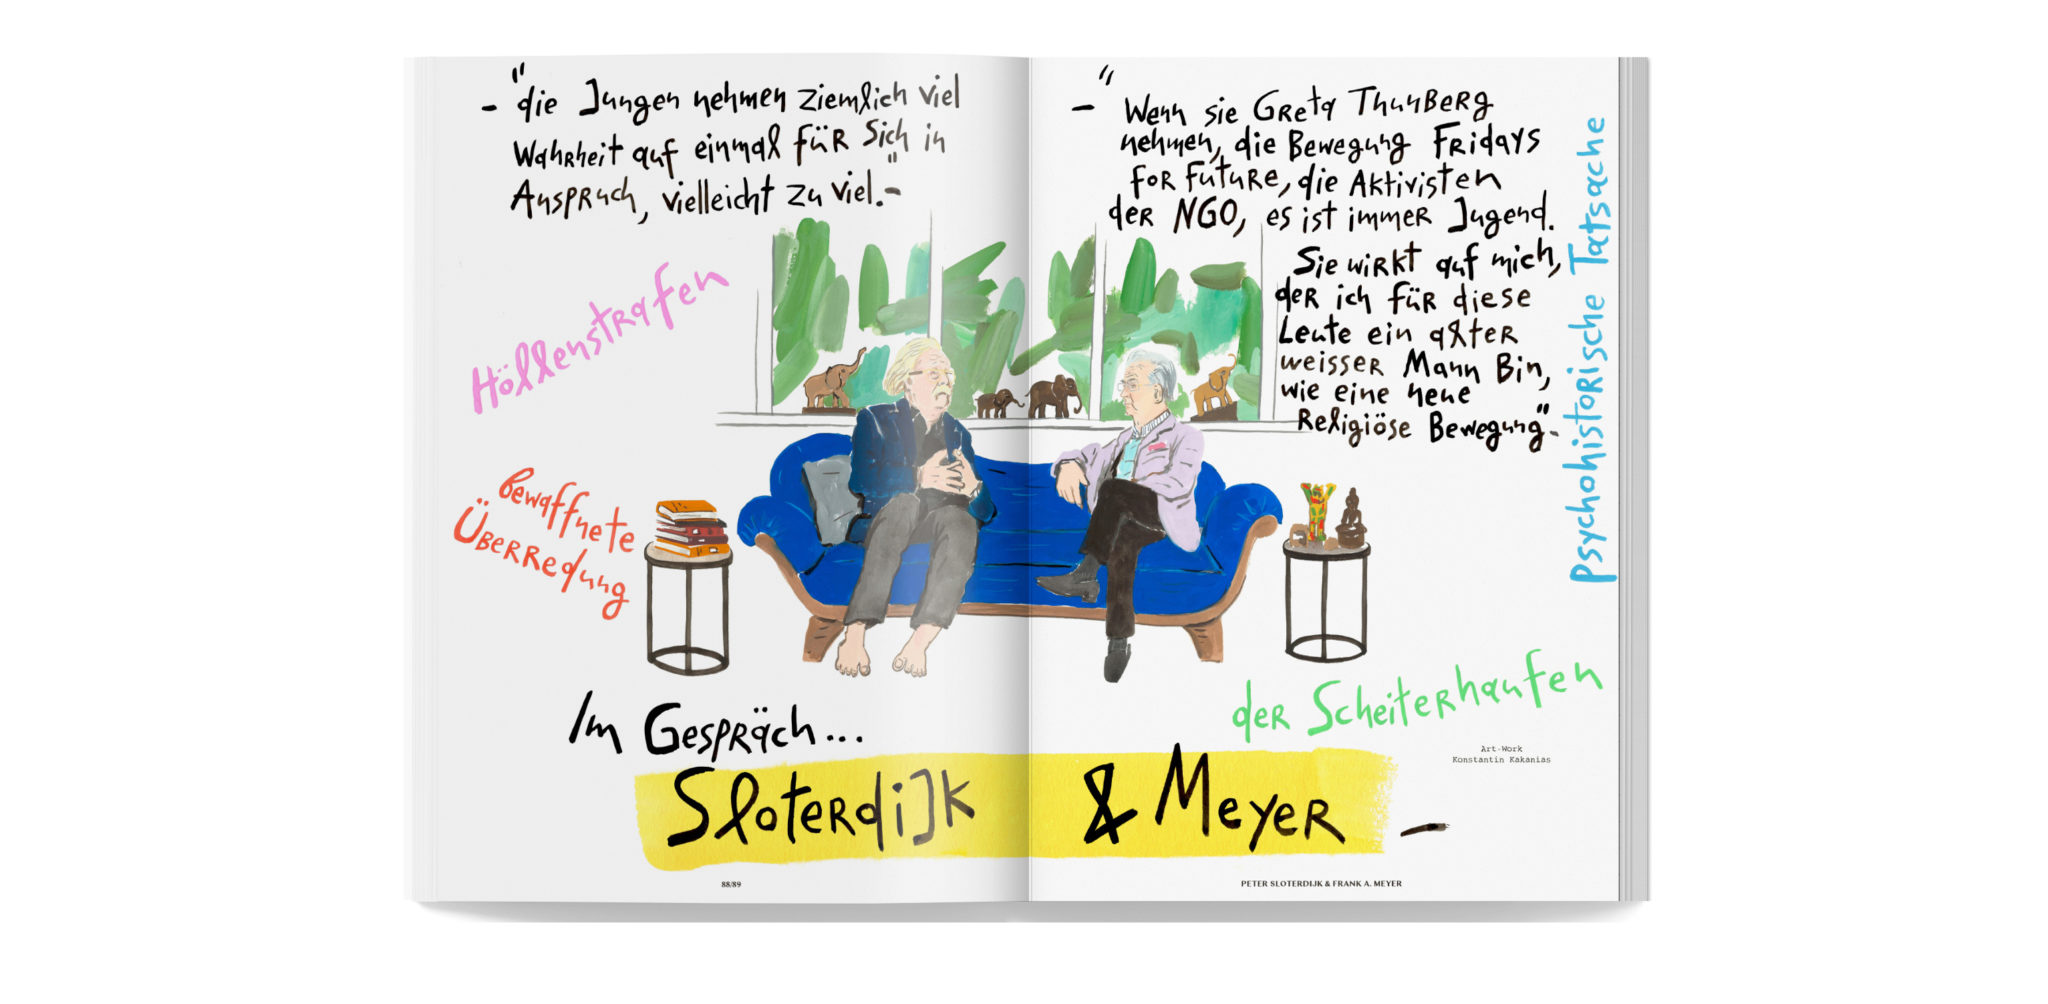 - "die Jungen nehmen ziemlich viel
Wahrheit auf einmal für Sich" in
Anspruch, vielleicht zu viel.-
Höllenstrafen
Bewaffnete
Überredung
- "Wenn sie Greta Thunberg
nehmen, die Bewegung Fridays
for Future, die Aktivisten
der NGO, es ist immer Jugend.
Sie wirkt auf mich,
der ich für diese
Leute ein alter
weisser Mann Bin,
wie eine neue
Religiöse Bewegung"-
Psychohistorische Tatsache
der Scheiterhaufen
Im Gespräch...
Sloterdijk & Meyer -
Art-Work
Konstantin Kakanias
88/89
PETER SLOTERDIJK & FRANK A. MEYER